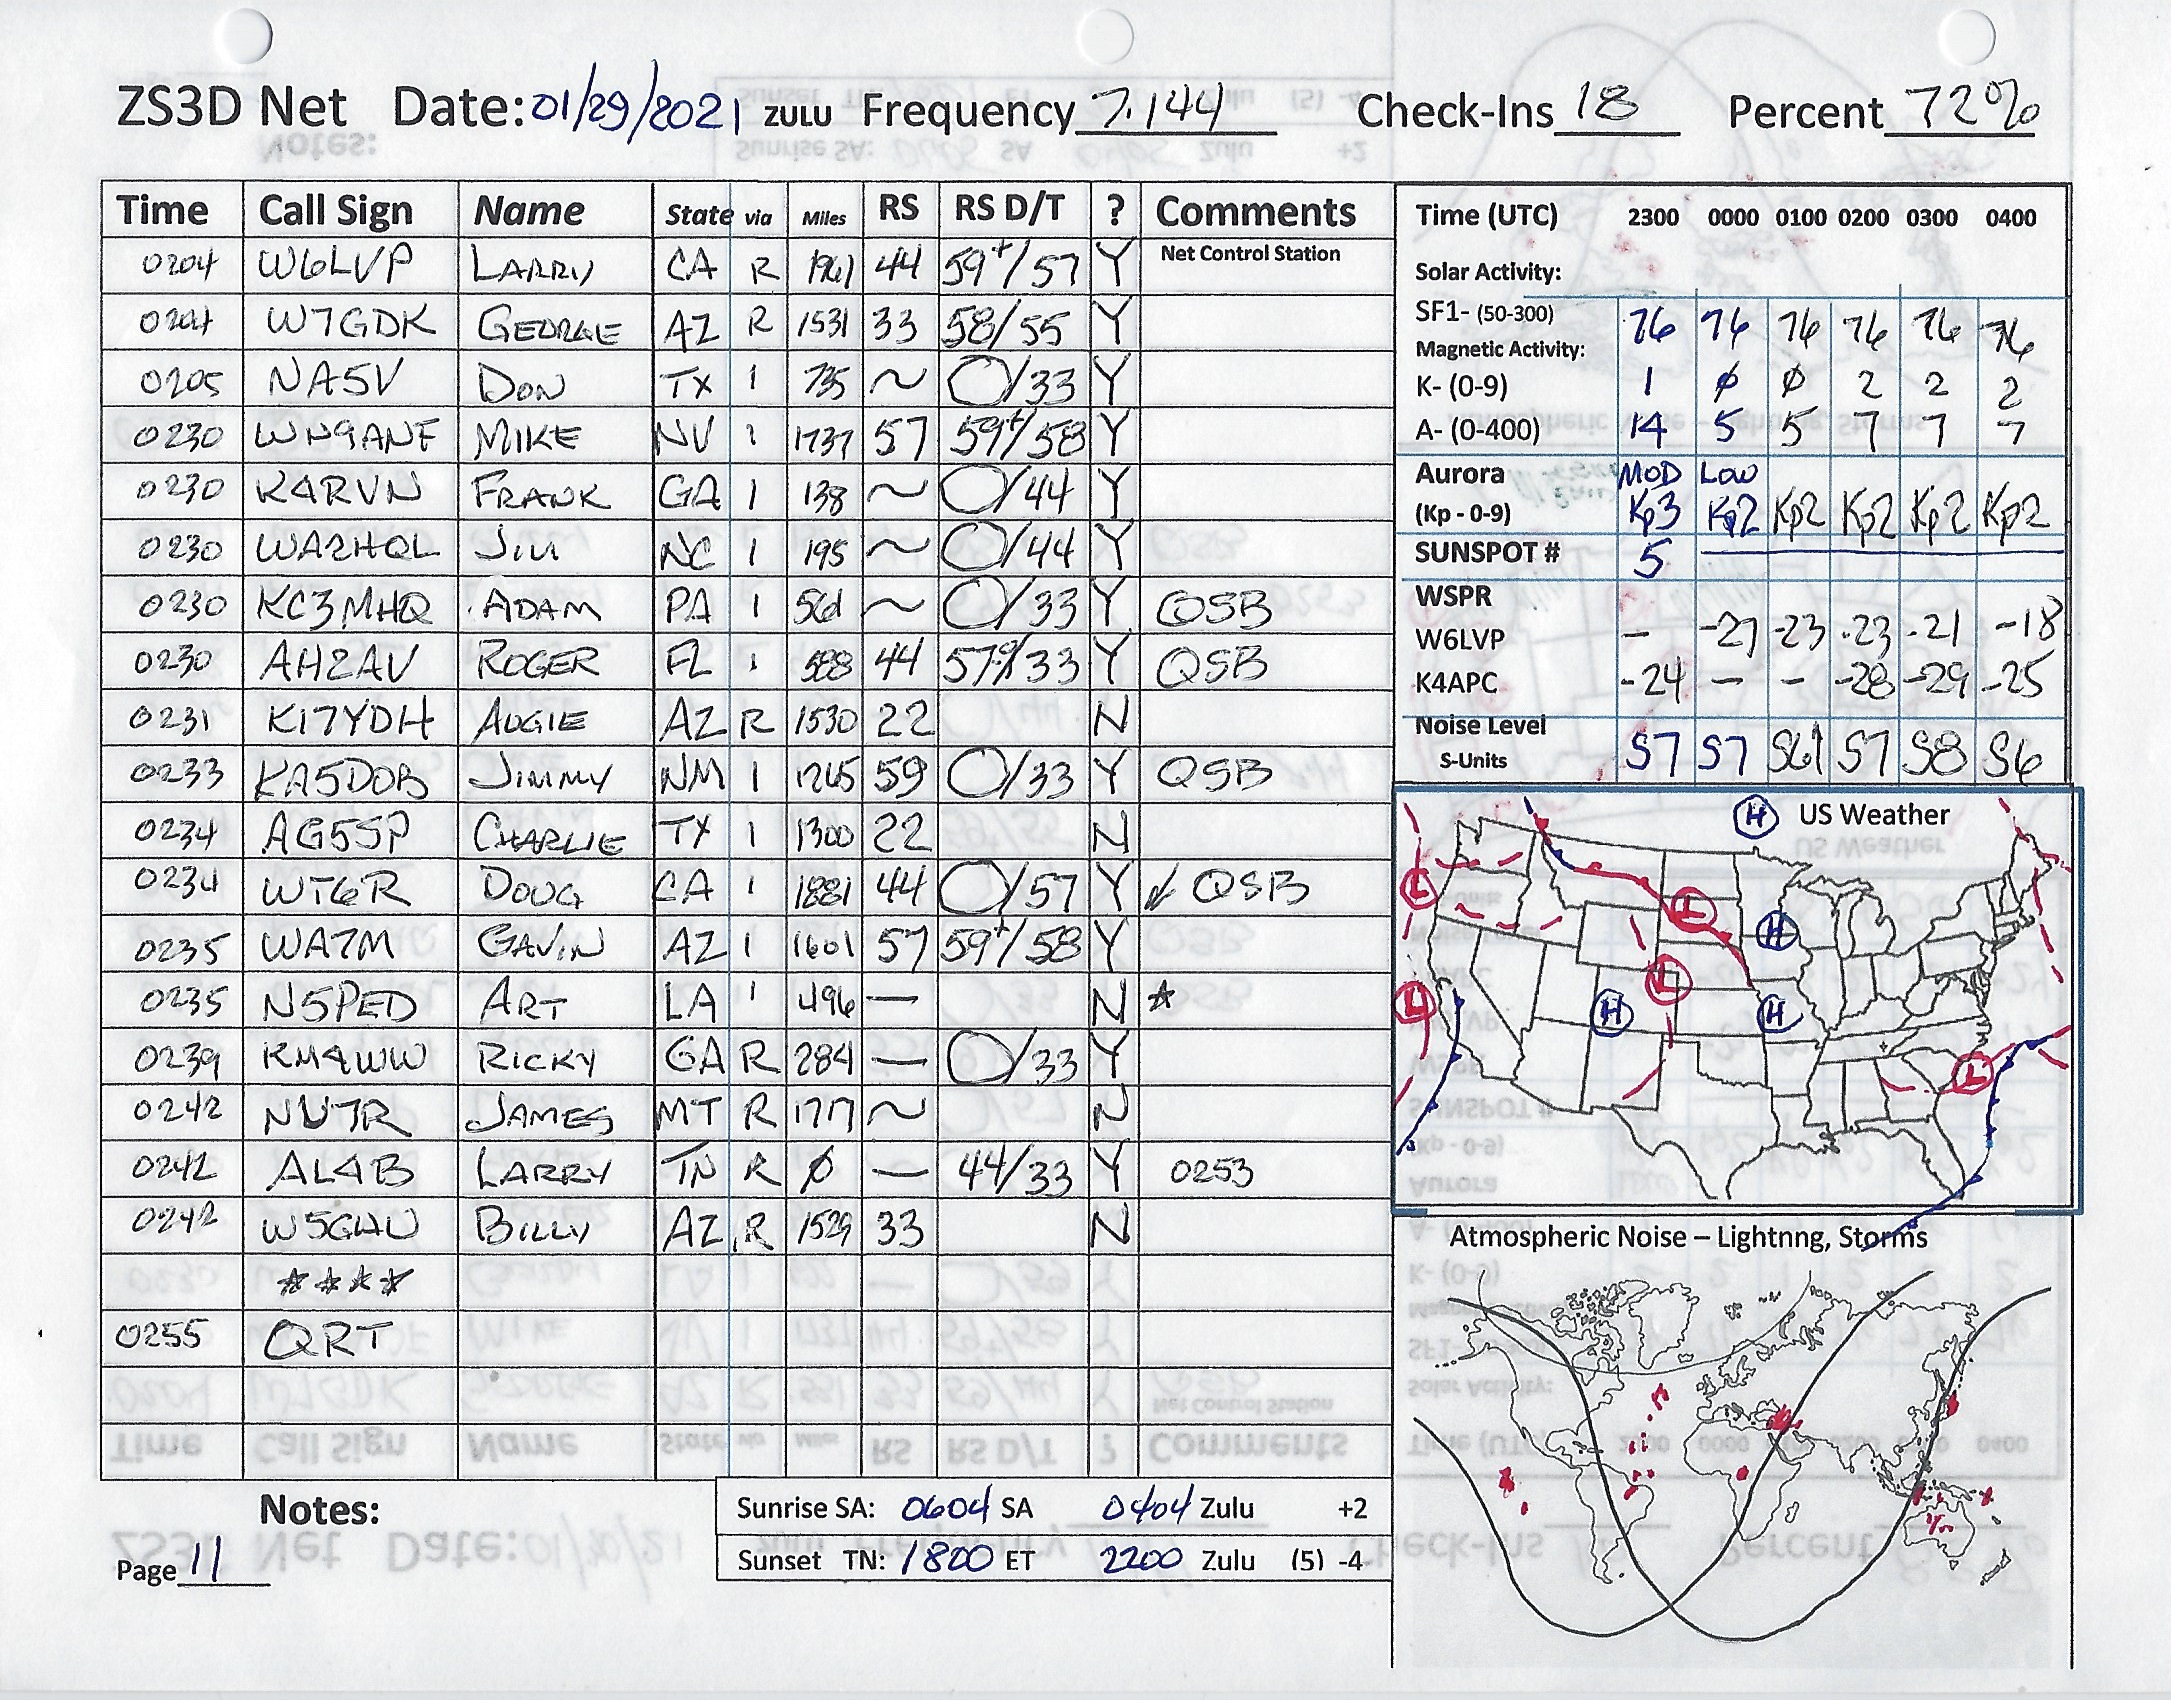 ZS3D Net Date: 01/29/2021 ZULU Frequency 7.144 Check-Ins 18 Percent 72%
Time Call Sign Name State via Miles RS RS D/T ? Comments
0204 W6LVP LARRY CA R 1961 44 59+/57 Y Net Control Station
0204 W7GDK GEORGE AZ R 1531 33 58/55 Y
0205 NA5V DON TX 1 735 ~ O/33 Y
0230 WN9ANF MIKE NV 1 1737 57 59+/58 Y
0230 K4RVN FRANK GA 1 138 ~ O/44 Y
0230 WA2HQL JIM NC 1 195 ~ O/44 Y
0230 KC3MHQ ADAM PA 1 561 ~ O/33 Y QSB
0230 AH2AV ROGER FL 1 588 44 /33 Y QSB
0231 KI7YDH AUGIE AZ R 1530 22 N
0233 KA5DOB JIMMY NM 1 1265 59 O/33 Y QSB
0234 AG5SP CHARLIE TX 1 1300 22 N
0234 WT6R DOUG CA 1 1881 44 O/57 Y ↙ QSB
0235 WA7M GAVIN AZ 1 1601 57 59+/58 Y
0235 N5PED ART LA 1 496 — N *
0239 KM4WW RICKY GA R 284 — O/33 Y
0242 NU7R JAMES MT R 1717 ~ N
0242 AL4B LARRY TN R Ø — 44/33 Y 0253
0242 W5GHU BILLY AZ R 1529 33 N
****
0255 QRT
Notes:
Page 11
Sunrise SA: 0604 SA 0404 Zulu +2
Sunset TN: 1800 ET 2200 Zulu (5) -4
Time (UTC) 2300 0000 0100 0200 0300 0400
Solar Activity:
SF1- (50-300) 76 76 76 76 76 76
Magnetic Activity:
K- (0-9) 1 Ø Ø 2 2 2
A- (0-400) 14 5 5 7 7 7
Aurora MOD LOW
(Kp - 0-9) Kp3 Kp2 Kp2 Kp2 Kp2 Kp2
SUNSPOT # 5
WSPR
W6LVP – -27 -23 -23 -21 -18
K4APC -24 – – -28 -29 -25
Noise Level
S-Units S7 S7 S6 S7 S8 S6
H US Weather
L
L
H
L
L
H
H
L
Atmospheric Noise – Lightnng, Storms